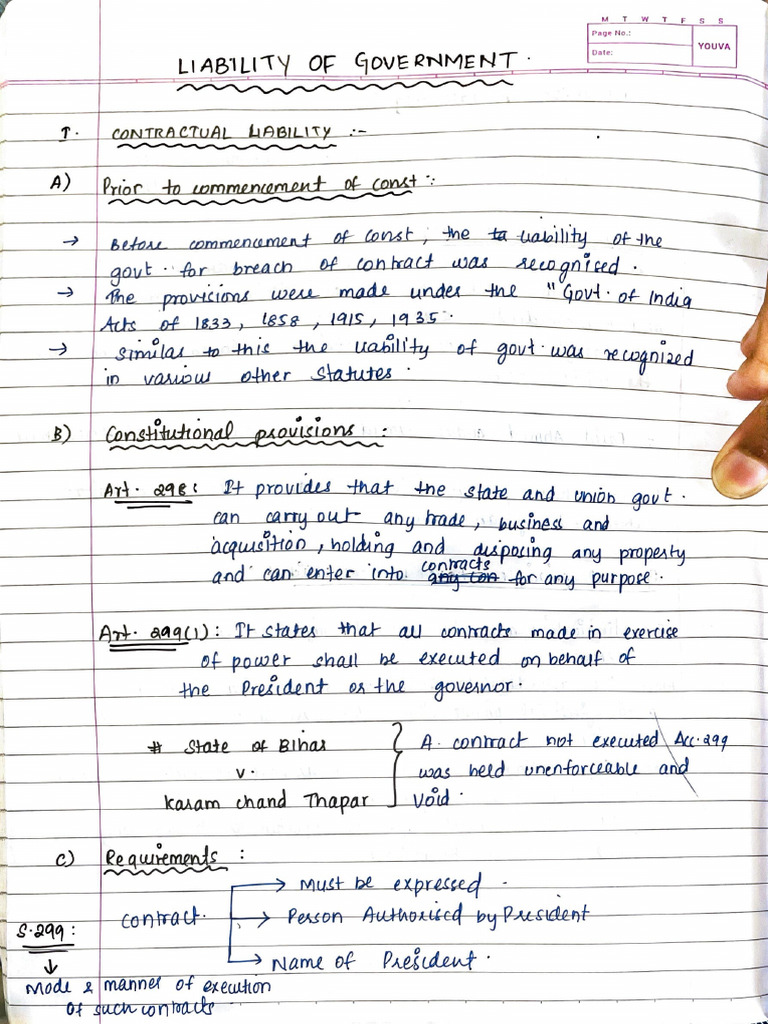 M T W T F S S
Page No.:
Date:
YOUVA
LIABILITY OF GOVERNMENT.
I. CONTRACTUAL LIABILITY :-
A) Prior to commencement of const :
→ Before commencement of const, the liability of the
govt. for breach of contract was recognised.
→ The provisions were made under the "Govt. of India
Acts of 1833, 1858, 1915, 1935.
→ Similar to this the liability of govt. was recognized
in various other statutes.
B) Constitutional provisions :
Art. 298: It provides that the state and union govt.
can carry out any trade, business and
acquisition, holding and disposing any property
and can enter into contracts for any purpose.
Art. 299(1): It states that all contracts made in exercise
of power shall be executed on behalf of
the President or the governor.
# State of Bihar
v.
Karam chand Thapar
A contract not executed Acc. 299
was held unenforceable and
void.
C) Requirements :
contract.
→ Must be expressed.
→ Person Authorised by President
→ Name of President.
S.299:
↓
Mode & manner of execution
of such contracts